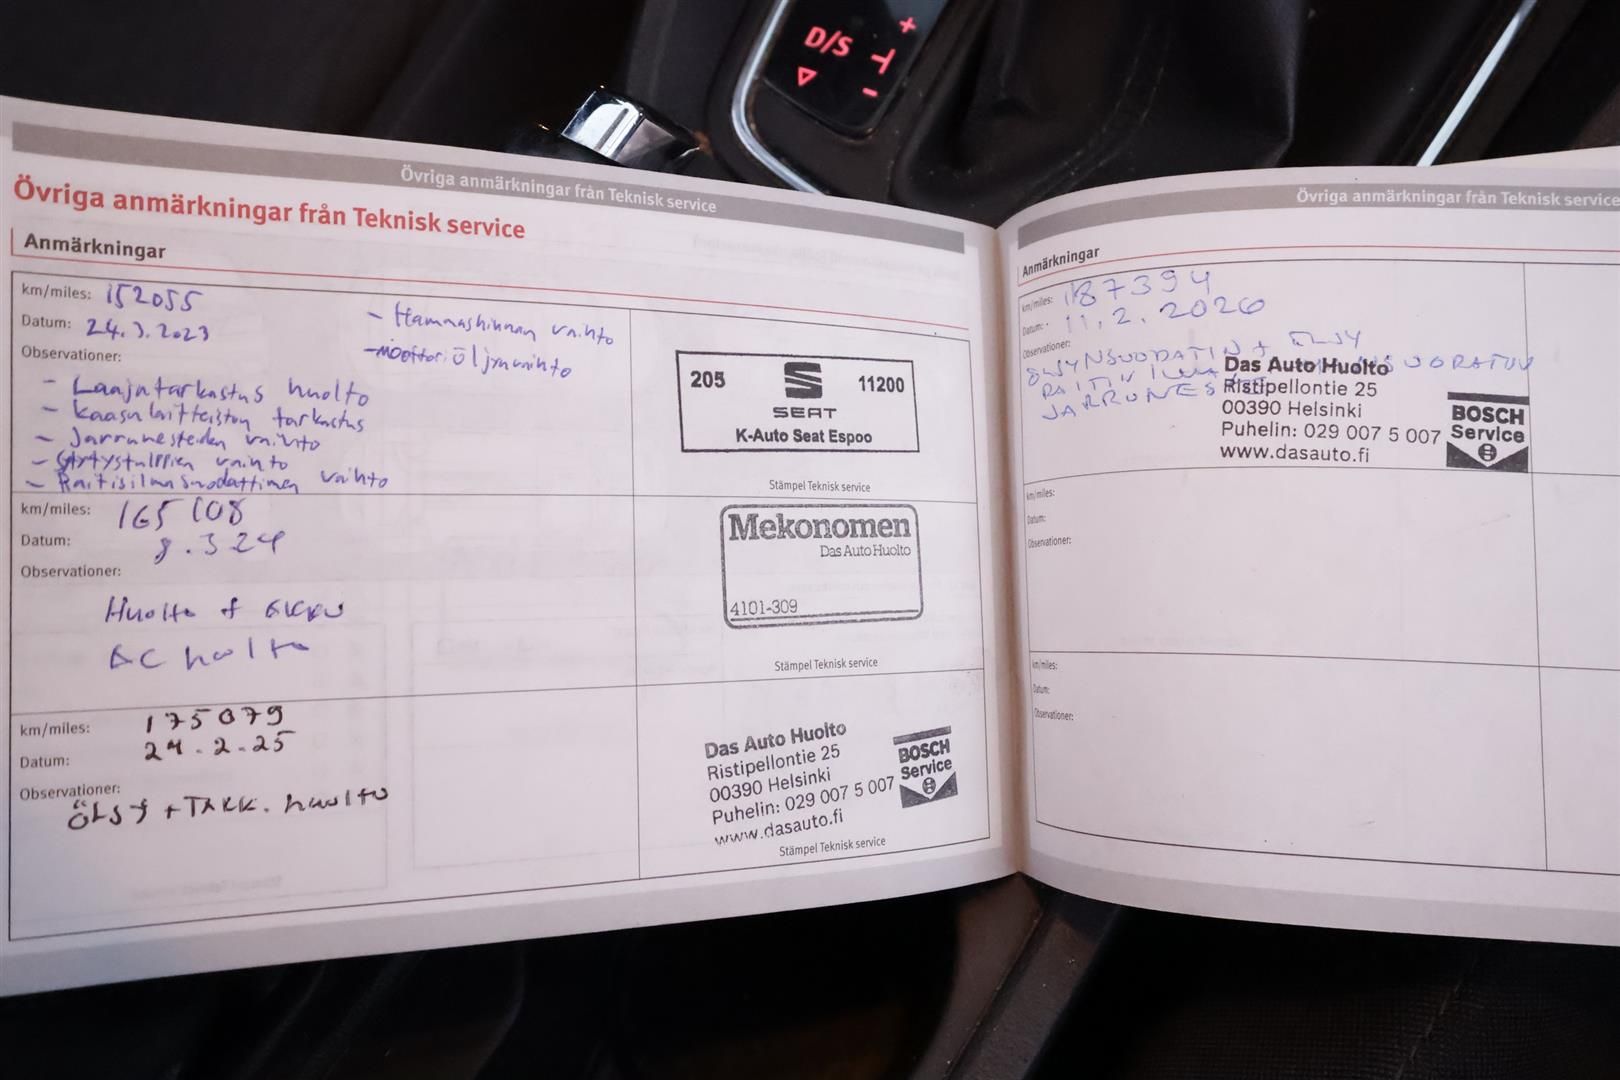 D/S
+
-
Övriga anmärkningar från Teknisk service
Övriga anmärkningar från Teknisk service
Anmärkningar
km/miles: 152055
Datum: 24.3.2023
Observationer:
- Laajatarkastus huolto
- Kaasulaitteiston tarkastus
- Jarrunesteiden vaihto
- Sytytystulppien vaihto
- Raitisilmasuodattimen vaihto
- Hammashihnan vaihto
- moottoriöljynvaihto
205 SEAT 11200
K-Auto Seat Espoo
Stämpel Teknisk service
km/miles: 165108
Datum: 8.3 24
Observationer:
Huolto +
AC huolto
Mekonomen
Das Auto Huolto
4101-309
Stämpel Teknisk service
km/miles: 175079
Datum: 24.2.25
Observationer:
ÖLJY + TARK. huolto
Das Auto Huolto
Ristipellontie 25
00390 Helsinki
Puhelin: 029 007 5 007
www.dasauto.fi
BOSCH
Service
Stämpel Teknisk service
Övriga anmärkningar från Teknisk service
Anmärkningar
km/miles: 187394
Datum: 11.2.2026
Observationer:
ÖLJYNSUODATIN + ÖLJY
JARRUNES
Das Auto Huolto
Ristipellontie 25
00390 Helsinki
Puhelin: 029 007 5 007
www.dasauto.fi
BOSCH
Service
km/miles:
Datum:
Observationer:
km/miles:
Datum:
Observationer: